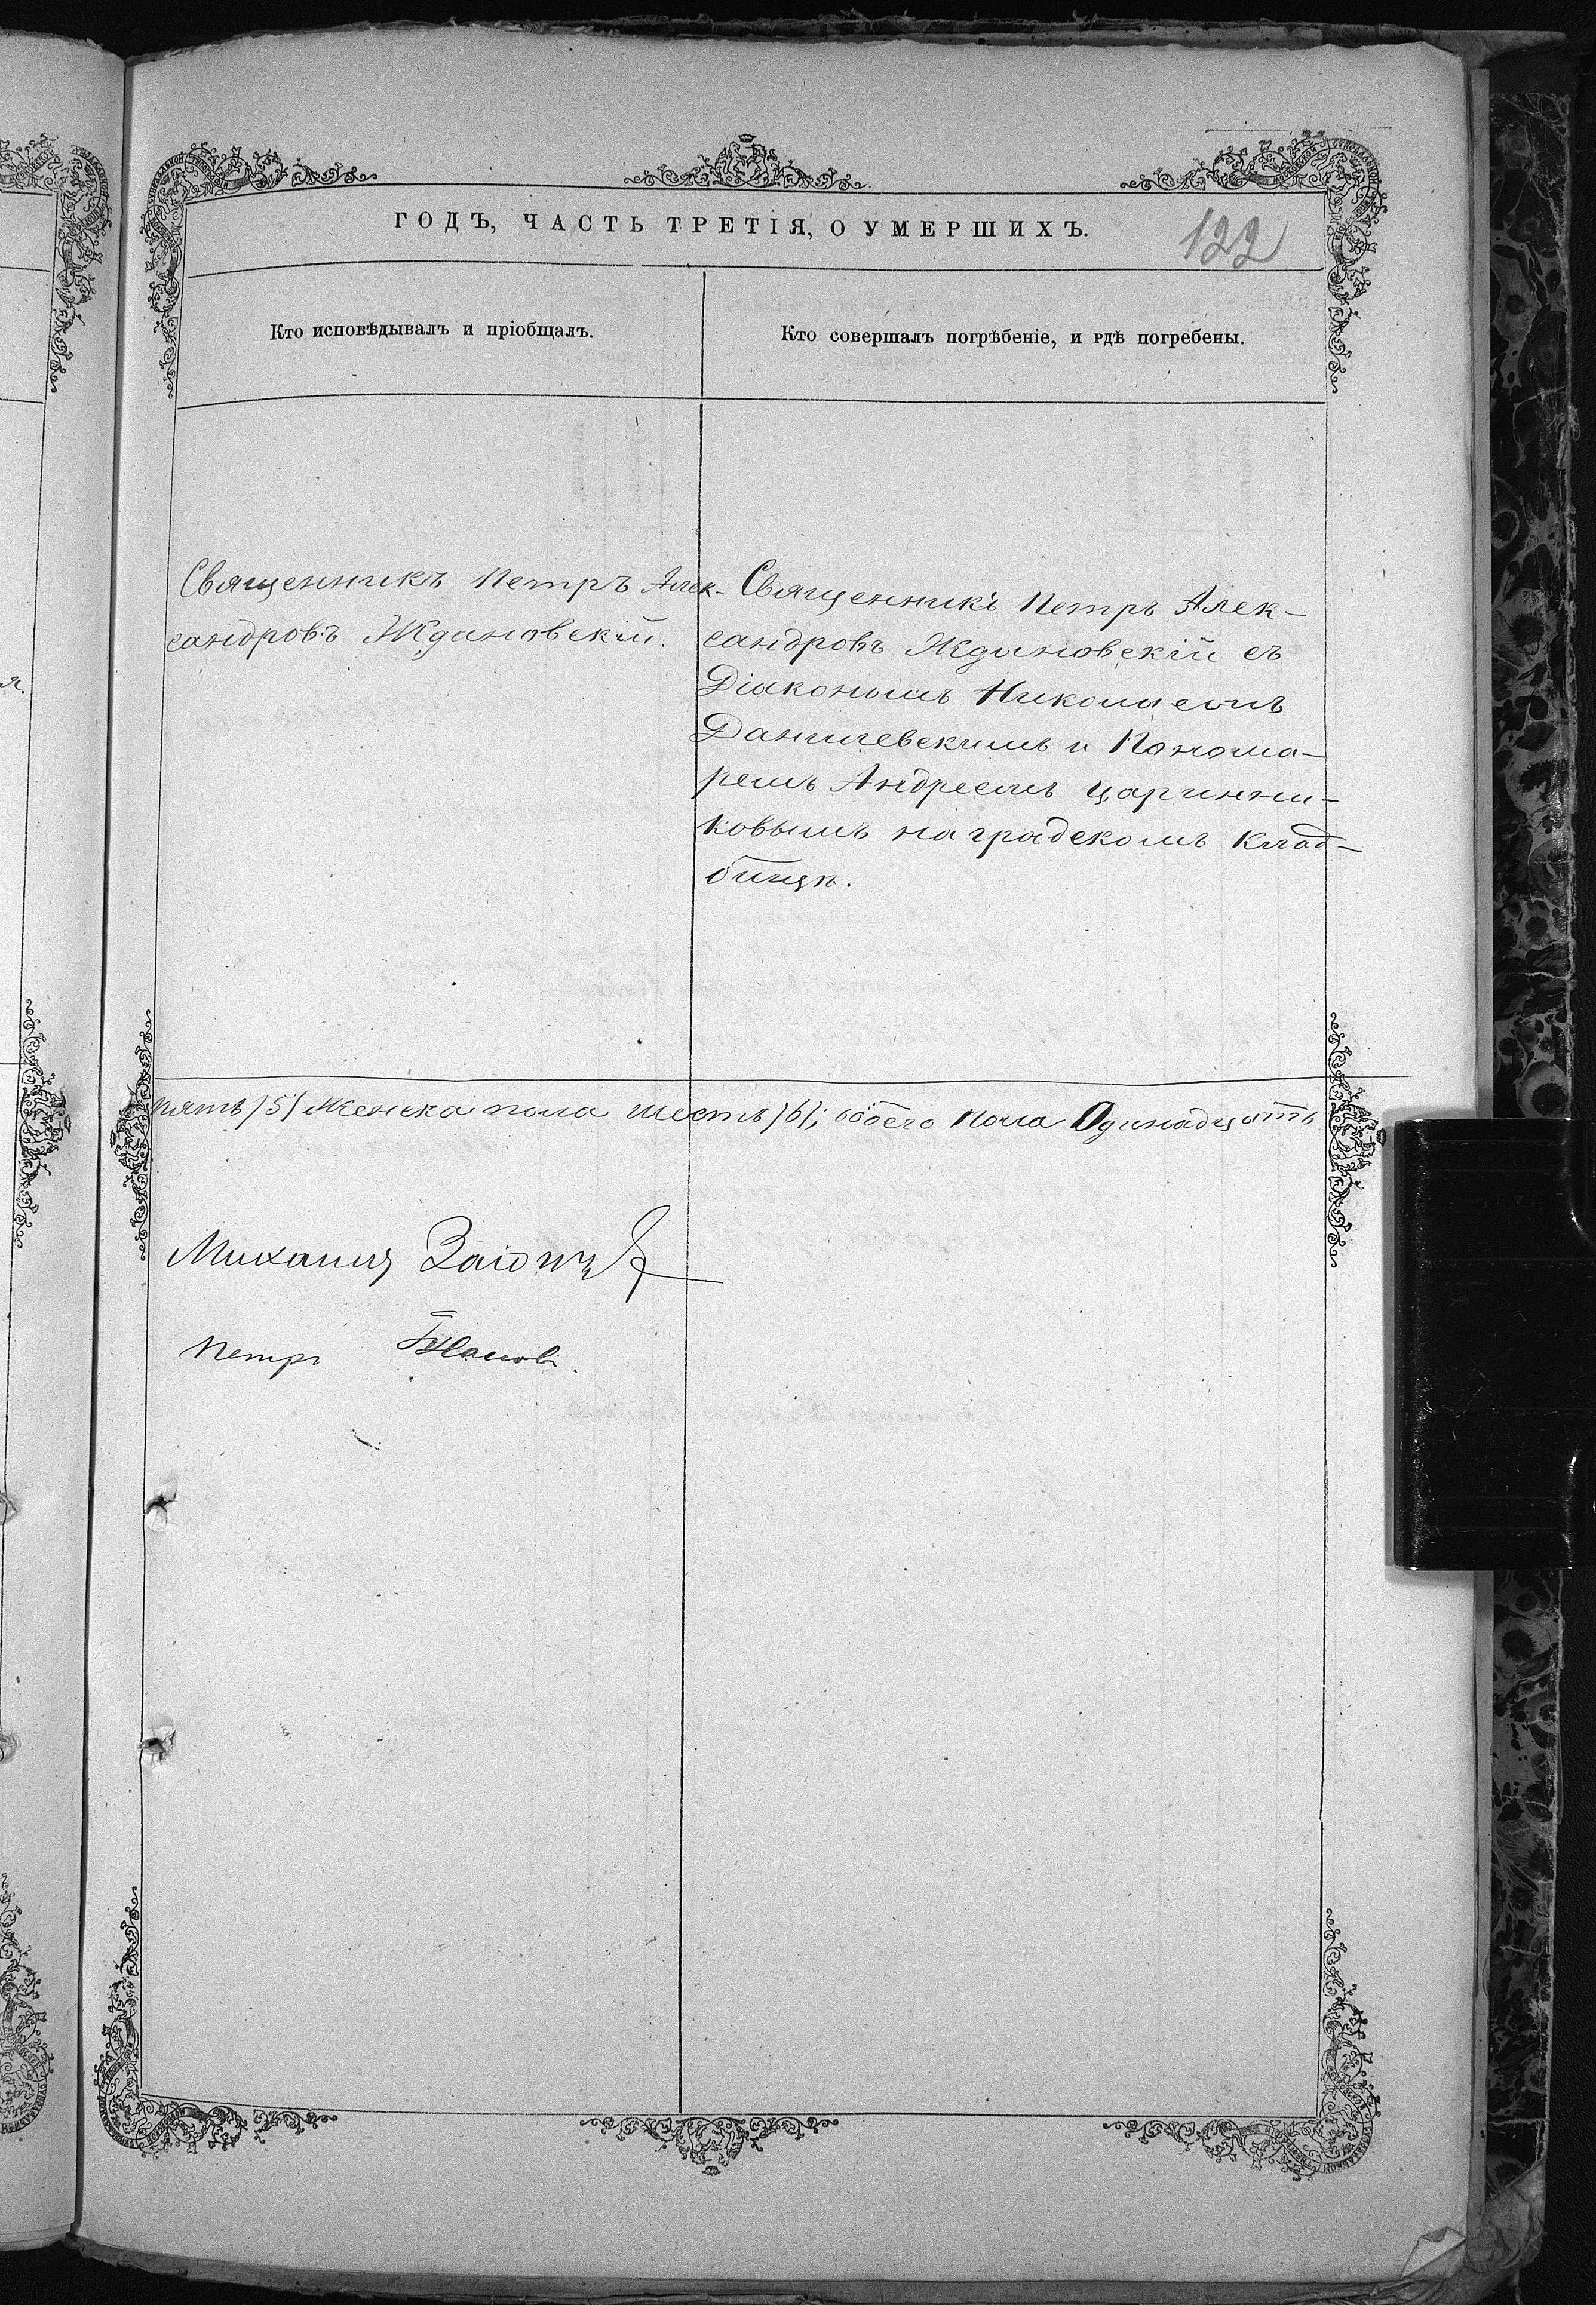 ГОДЪ, ЧАСТЬ ТРЕТІЯ, О УМЕРШИХЪ.
122
Кто исповѣдывалъ и пріобщалъ.
Кто совершалъ погрѣбеніе, и гдѣ погребены.
Священникъ Петръ Алек-
сандровъ Ждановскій.
Священникъ Петръ Алек-
сандровъ Ждановскій съ
Діакономъ Николаемъ
Данилевскимъ и Понома-
ремъ Андреемъ Царинни-
ковымъ на градскомъ клад-
бищѣ.
пять /5/ женска пола шесть /6/; обоего пола Одинадцать
Михаилъ
Петръ
я.